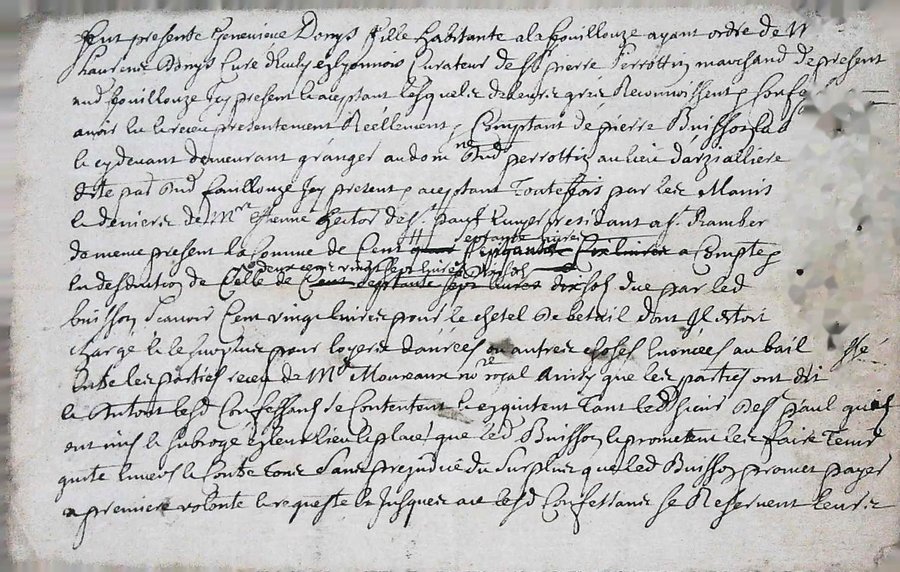 fut presente Genevieve Donys fille habitante a la fouillouze ayant ordre de
Donys Curé Curateur de Sr pierre Perrottin marchand de present
aud fouillouze Icy present & aceptant lesquels de leurs grez Reconnoissent
avoir eu & receu presentement Reellement Comptant de pierre Buisson
le cy devant demeurant granger au dom dud perrottin au lieu
par dud fouillouze Icy present & aceptant Toutefois par les Mains
& deniers de Mre Estienne hector de St paul residant a St Ramber
de meme present la somme de Cent septante livres a Compte &
en desduction de Celle de deux cens vingt sept livres dix sols due par led
buisson scavoir Cent vingt livres pour le chetel de betail dont Il estoit
chargé & le pour loyers danrées ou autres choses Enoncées au bail
Entre les parties receu de Me Moureaux nore royal Ainsy que les parties ont dit
& dontant lesd Confessans se Contentent & en quittent Tant led sieur de St paul
ont mis & subrogé en leur lieu & place que led Buisson & promettent les faire Tenir
quitte Envers & Contre tous Sans prejudice du surplus que led Buisson promet payer
a premiere volonté & requeste & Jusques a ce lesd Confessans se Reservent leurs